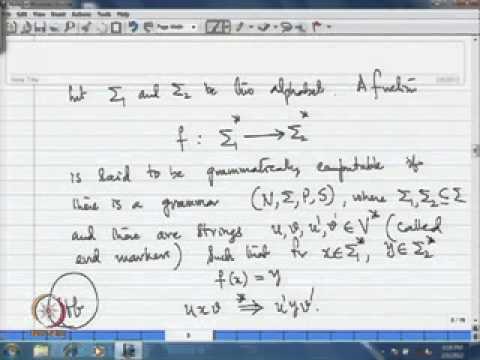 Let Σ₁ and Σ₂ be two alphabet. A function
f : Σ₁* ⟶ Σ₂*
is said to be grammatically computable if
there is a grammar (N, Σ, P, S), where Σ₁, Σ₂ ⊆ Σ
and there are strings u, v, u', v' ∈ V* (called
end markers) such that for x ∈ Σ₁*, y ∈ Σ₂*
f(x) = y
u x v ⇒* u' y v'.